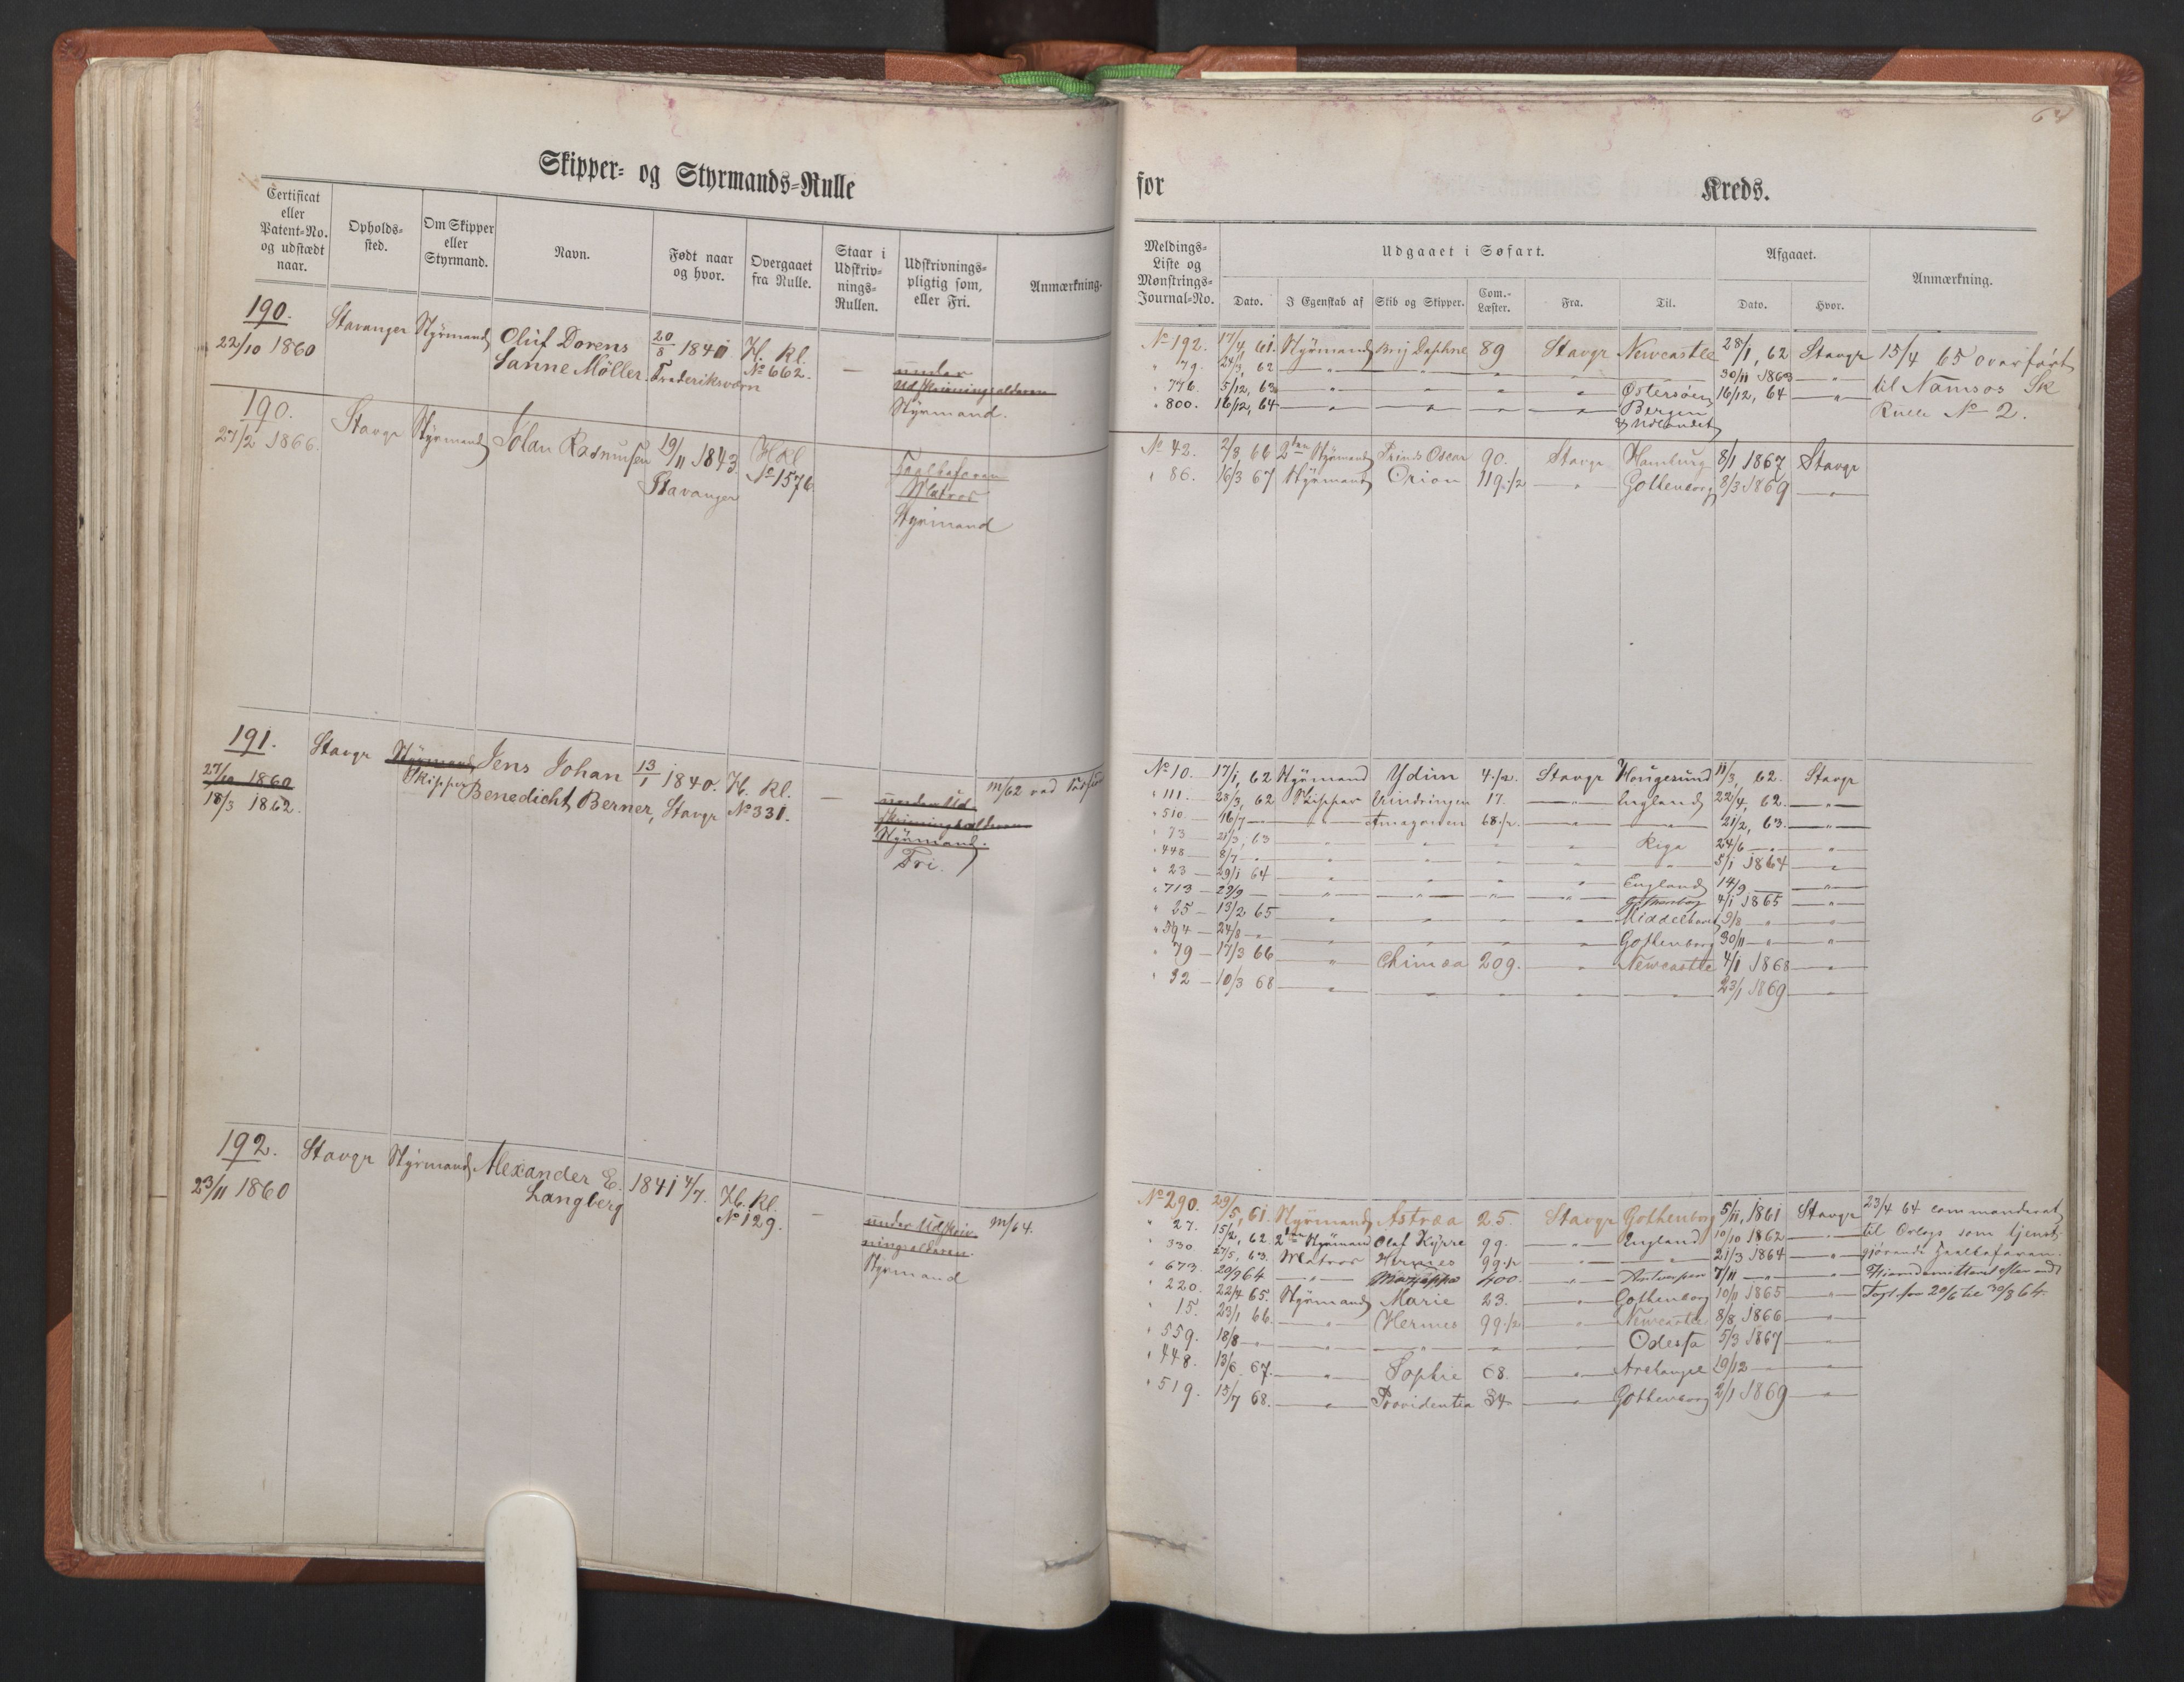 Skipper- og Styrmands-Rulle
Certificat eller Patent-No. og udstædt naar.
Opholds-sted.
Om Skipper eller Styrmand.
Navn.
Født naar og hvor.
Overgaaet fra Rulle.
Staar i Udskriv-nings-Rullen.
Udskrivnings-pligtig som, eller Fri.
Anmærkning.
190. Stavanger Styrmand Oluf Dorens 20/8 1840 H. Kl.
22/10 1860 Sanne Möller. Frederiksværn No 662. — under
Udskrivningsalderen
Styrmand.
190. Stavgr Styrmand Johan Rasmussen 19/11 1843 H Kl
27/2 1866. Stavanger No 1576
Matros
Styrmand
191. Stavgr Styrmand Jens Johan 13/1 1840. H. Kl.
27/10 1860 Skipper Benedicht Berner, Stavgr No 331. —
18/3 1862.
under Ud
skrivningsalderen
Styrmand.
Fri.
192. Stavgr Styrmand Alexander E. 1841 4/7. H. Kl.
23/11 1860 Langberg No 129. —
under Udskriv-
ningsalderen.
Styrmand
m/64.
for Kreds.
64
Meldings-Liste og Mønstrings-Journal-No.
Udgaaet i Søfart.
Afgaaet.
Anmærkning.
Dato.
I Egenskab af
Skib og Skipper.
Com.-Læster.
Fra.
Til.
Dato.
Hvor.
No 192. 17/4 61. Styrmand Brig Daphne 89 Stavgr Newcastle 28/1, 62 Stavgr 15/4 65 overført
" 79. 24/3, 62 — " — 30/11 1863 — " til Namsos Sk
" 776. 5/12, 63 — " — Østersöen 16/12, 64 — " Rulle No 2.
" 800. 16/12, 64 — " — Bergen
& Udlandet
No 42. 2/3 66 2den Styrmand Prinds Oscar 90. Stavgr Hamburg 8/1 1867 Stavgr
" 86. 16/3 67 Styrmand Orion 119 1/2 — " — Gothenborg 8/3 1869 — " —
No 10. 17/1, 62 Styrmand Ydun 4 1/2. Stavgr Hougesund 11/3, 62. Stavgr
" 111. 28/3, 62 Skipper Vindringen 17. — " — England 22/4, 62. — " —
" 510 — 16/7 — " — Amazonen 68 1/2. — " — 21/2, 63. — " —
" 73 — 21/3, 63 — " — Riga 24/6 — " —
" 448 — 8/7 — " — 5/1 1864 — " —
" 23 — 29/1 64 — " — England 14/9 — " —
" 713 — 29/9 — " — Gothenborg 4/1 1865 — " —
" 25 — 13/2 65 — " — Middelhavet 9/8 — " —
" 594 — 24/8 — " — Gothenborg 30/11 — " —
" 79 — 17/3 66 — " — Chimæa 209. — " — Newcastle 4/1 1868 — " —
" 32 — 10/3 68 — " — 23/1 1869 — " —
No 290. 29/5, 61. Styrmand Astræa 25. Stavgr Gothenborg 5/11, 1861 Stavgr 23/4 64 commanderet
" 27. 15/2, 62. 2den Styrmand Olaf Kyrre 99. — " — England 10/10 1862 — " til Orlogs som tjenst-
" 330 27/5, 63. Matros Hermes 99 1/2 — " — 21/3 1864 — "
" 673. 20/9 64 — " — Mazeppa 400. — " — Antwerpen 7/11 — " —
" 220. 22/4 65. Styrmand Marie 23. — " — Gothenborg 10/11 1865 — "
" 15. 23/1 66. — " — Hermes 99 1/2 — " — Newcastle 8/8 1866 — " —
" 559. 18/8 — " — Odessa 5/3 1867 — " —
" 448. 13/6 67. — " — Sophie 68. — " — Archangel 19/12 — " —
" 519. 13/7 68. — " — Providentia 34 — " — Gothenborg 2/1 1869 — " —